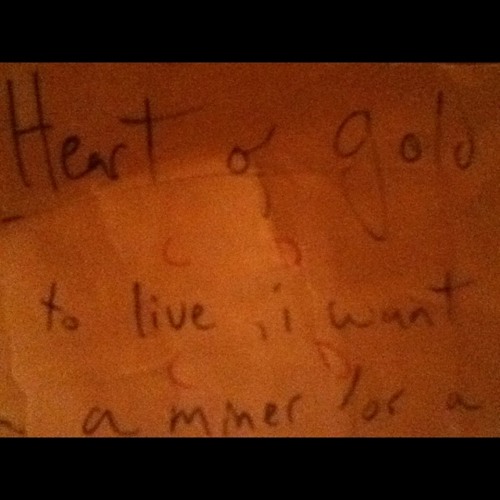 Heart of gold
to live, i want
a miner for a